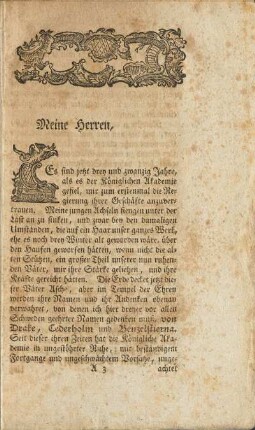 Meine Herren,
Es sind jetzt drey und zwanzig Jahre,
als es der Königlichen Akademie
gefiel, mir zum erstenmal die Re-
gierung ihrer Geschäfte anzuver-
trauen. Meine jungen Achseln hengen unter der
Last an zu sinken, und zwar bey den damaligen
Umständen, die auf ein Haar unser ganzes Werk,
ehe es noch drey Winter alt geworden wäre, über
den Haufen geworfen hätten, wenn nicht die al-
ten Stützen, ein großer Theil unserer nun ruhen-
den Väter, mir ihre Stärke geliehen, und ihre
Kräfte gereicht hätten. Die Erde decket jetzt die-
ser Väter Asche, aber im Tempel der Ehren
werden ihre Namen und ihr Andenken ebenau
verwahret, von denen ich hier dreyer vor allen
Schweden geehrter Namen gedenken muß, von
Drake, Cederholm und Benzelstierna.
Seit dieser ihren Zeiten hat die Königliche Aka-
demie in ungestöhrter Ruhe, mit beständigem
Fortgange und ungeschwächtem Vorsatze, unge-
A 3 achtet